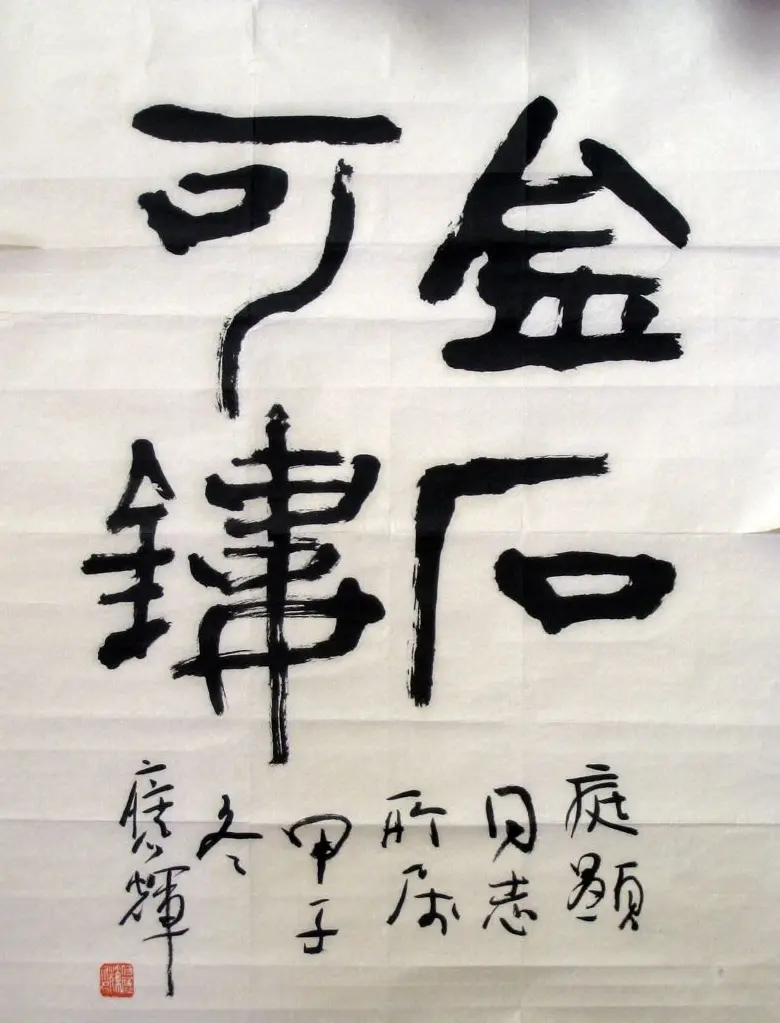 金石
可鏤
庭顯
同志
所属
甲子
冬
應輝